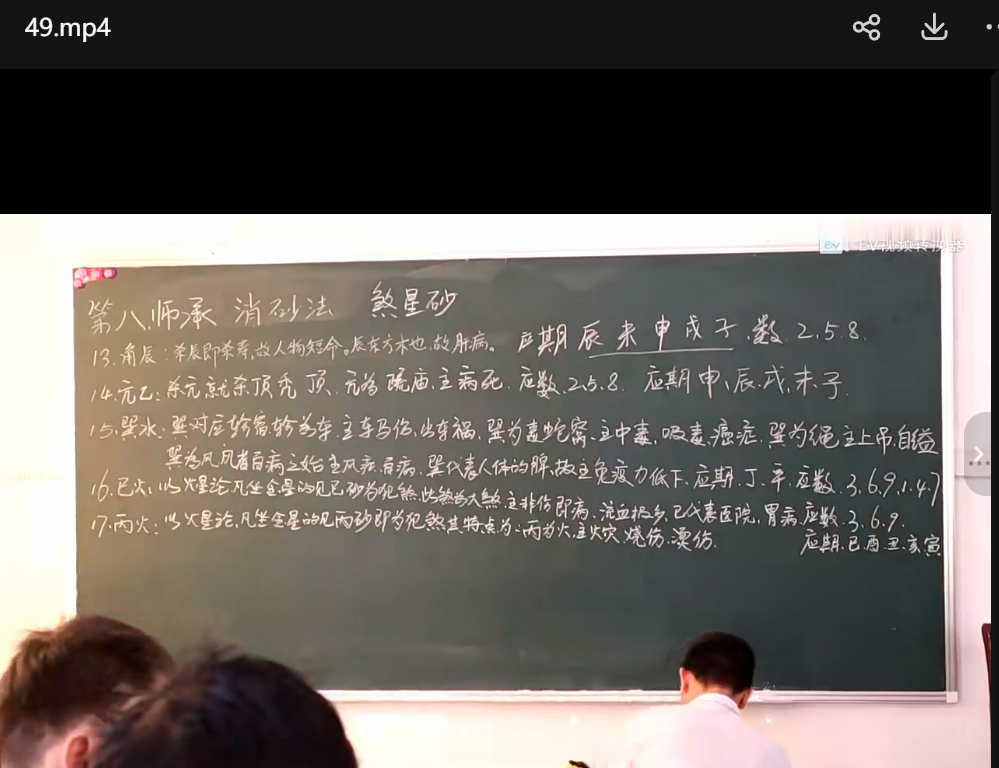 49.mp4
EV视频转换器
第八师承 消砂法 煞星砂
13.角辰:杀辰即杀寿,故人物短命。辰东方木也,故肝病。应期 辰 未 申 戌 子.数.2.5.8.
14.亢乙:杀亢就杀顶秃顶.亢为 庙.主病死.应数.2.5.8.应期申、辰.戌,未子.
15.巽水:巽对应轸宿轸为车.主车马伤,出车祸,巽为毒蛇窝.主中毒,吸毒.癌症.巽为绳主上吊.自缢
巽为风风者百病之始主风疾百病.巽代表人体的脾,故主免疫力低下.应期.丁.辛.应数.3.6.9.1.4.7
16.巳火:以火星论.凡坐金星的见巳砂为犯煞.此煞为大煞.主非伤即病.流血 .巳代表医院,胃病.应数.3.6.9.
17.丙火:以火星论,凡坐金星的见丙砂即为犯煞其特点为:丙为火.主火灾.烧伤.烫伤.
应期.巳.酉.丑.亥.寅